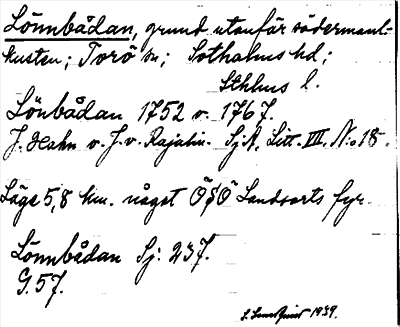 Lönnbådan, grund utanför södermanl.-
kusten; Torö sn; Sotholms hd;
Sthlms l.
Lönbådan 1752 v. 1767.
J. Hahn v. J. v. Rajalin. SjA, Litt. VII, N:o 18.
Läge 5,8 km. något ÖSÖ Landsorts fyr.
Lönnbådan Sj. 237.
G. 57.
1939.